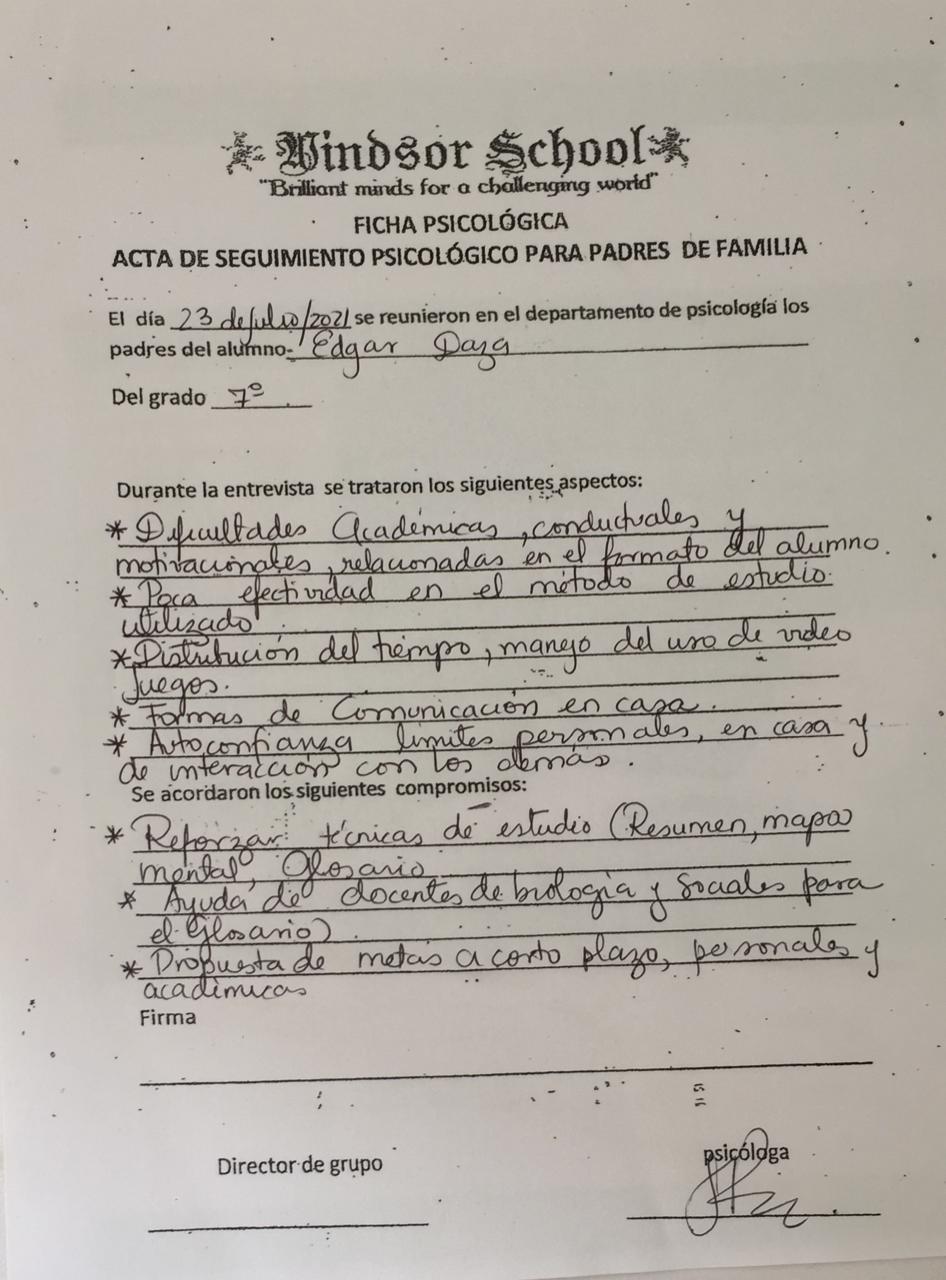 Windsor School
"Brilliant minds for a challenging world"
FICHA PSICOLÓGICA
ACTA DE SEGUIMIENTO PSICOLÓGICO PARA PADRES DE FAMILIA
El día 23 de Julio/2021 se reunieron en el departamento de psicología los
padres del alumno- Edgar Daza
Del grado 7º
Durante la entrevista se trataron los siguientes aspectos:
* Dificultades Académicas, conductuales y
motivacionales, relacionadas en el formato del alumno.
* Poca efectividad en el método de estudio
utilizado.
* Distribución del tiempo, manejo del uso de video
Juegos.
* Formas de Comunicación en casa.
* Autoconfianza límites personales, en casa y
de interacción con los demás.
Se acordaron los siguientes compromisos:
* Reforzar técnicas de estudio (Resumen, mapa
mental, Glosario
* Ayuda de docentes de biología y Sociales para
el Glosario).
* Propuesta de metas a corto plazo, personales y
académicas
Firma
Director de grupo
psicóloga